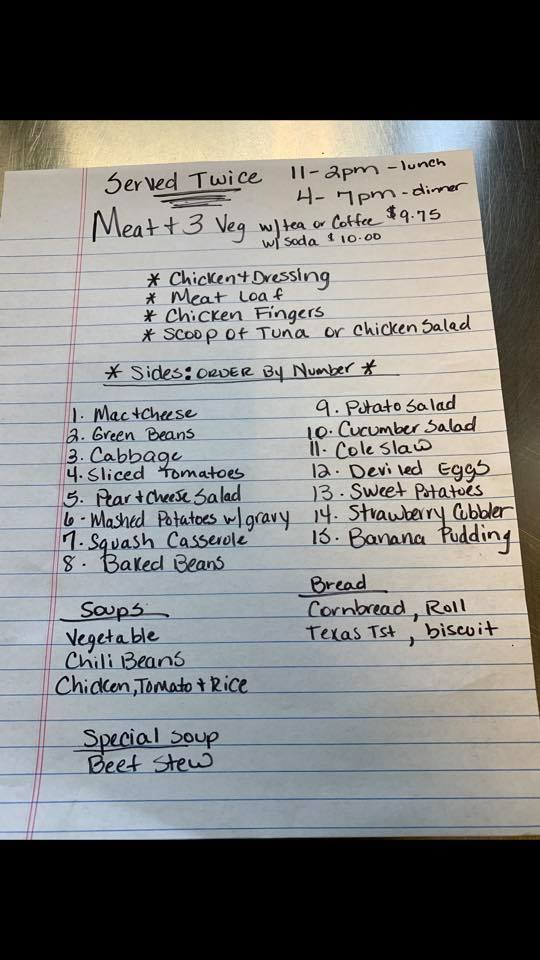 Served Twice
11-2pm-lunch
4-7pm-dinner
Meat+3 Veg w/tea or Coffee $9.75
w/soda $10.00
* Chicken+Dressing
* Meat Loaf
* Chicken Fingers
* Scoop of Tuna or Chicken Salad
* Sides: ORDER By Number *
1. Mac+cheese
2. Green Beans
3. Cabbage
4. Sliced Tomatoes
5. Pear+cheese Salad
6- Mashed Potatoes w/gravy
7. Squash Casserole
8. Baked Beans
9. Potato Salad
10. Cucumber Salad
11. Cole Slaw
12. Deviled Eggs
13. Sweet Potatoes
14. Strawberry Cobbler
15. Banana Pudding
Soups
Vegetable
Chili Beans
Chicken, Tomato+Rice
Bread
Cornbread, Roll
Texas Tst, biscuit
Special Soup
Beef Stew